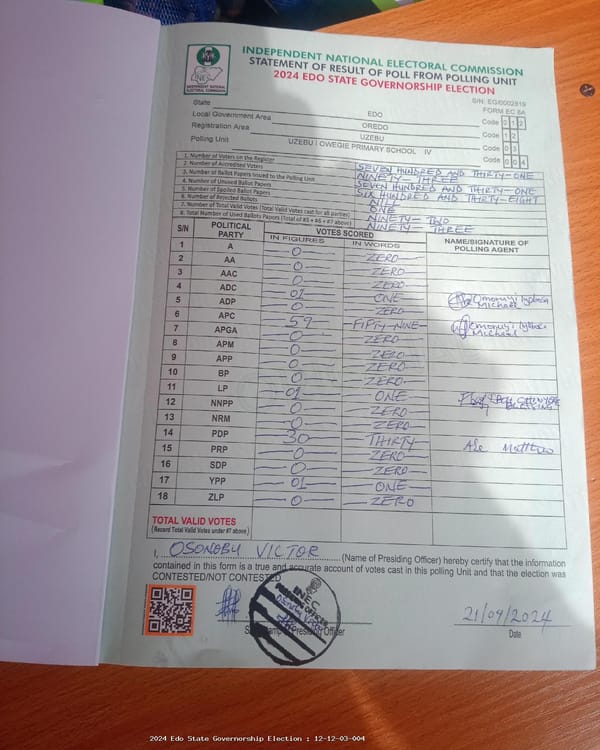 INDEPENDENT NATIONAL ELECTORAL COMMISSION
STATEMENT OF RESULT OF POLL FROM POLLING UNIT
2024 EDO STATE GOVERNORSHIP ELECTION
INEC
INDEPENDENT NATIONAL ELECTORAL COMMISSION
S/N: EG/0002819
FORM EC 8A
State EDO Code 0 1 2
Local Government Area OREDO Code 1 2
Registration Area UZEBU Code 0 3
Polling Unit UZEBU I OWEGIE PRIMARY SCHOOL IV Code 0 0 4
1. Number of Voters on the Register SEVEN HUNDRED AND THIRTY-ONE
2. Number of Accredited Voters NINETY-THREE
3. Number of Ballot Papers Issued to the Polling Unit SEVEN HUNDRED AND THIRTY-ONE
4. Number of Unused Ballot Papers SIX HUNDRED AND THIRTY-EIGHT
5. Number of Spoiled Ballot Papers NILL
6. Number of Rejected Ballots ONE
7. Number of Total Valid Votes (Total Valid Votes cast for all parties) NINETY-TWO
8. Total Number of Used Ballots Papers (Total of #5 + #6 + #7 above) NINETY-THREE
S/N POLITICAL PARTY VOTES SCORED NAME/SIGNATURE OF POLLING AGENT
IN FIGURES IN WORDS
1 A 0 ZERO
2 AA 0 ZERO
3 AAC 0 ZERO
4 ADC 01 ONE
5 ADP 0 ZERO
6 APC 59 FIFTY-NINE Michael
7 APGA 0 ZERO Michael
8 APM 0 ZERO
9 APP 0 ZERO
10 BP 0 ZERO
11 LP 01 ONE
12 NNPP 0 ZERO BLESSING
13 NRM 0 ZERO
14 PDP 30 THIRTY
15 PRP 0 ZERO Matthew
16 SDP 0 ZERO
17 YPP 01 ONE
18 ZLP 0 ZERO
TOTAL VALID VOTES
(Record Total Valid Votes under #7 above)
I, OSONOBU VICTOR (Name of Presiding Officer) hereby certify that the information
contained in this form is a true and accurate account of votes cast in this polling Unit and that the election was
CONTESTED/NOT CONTESTED
INEC
21/09/2024
Presiding Officer
Date
2024 Edo State Governorship Election : 12-12-03-004